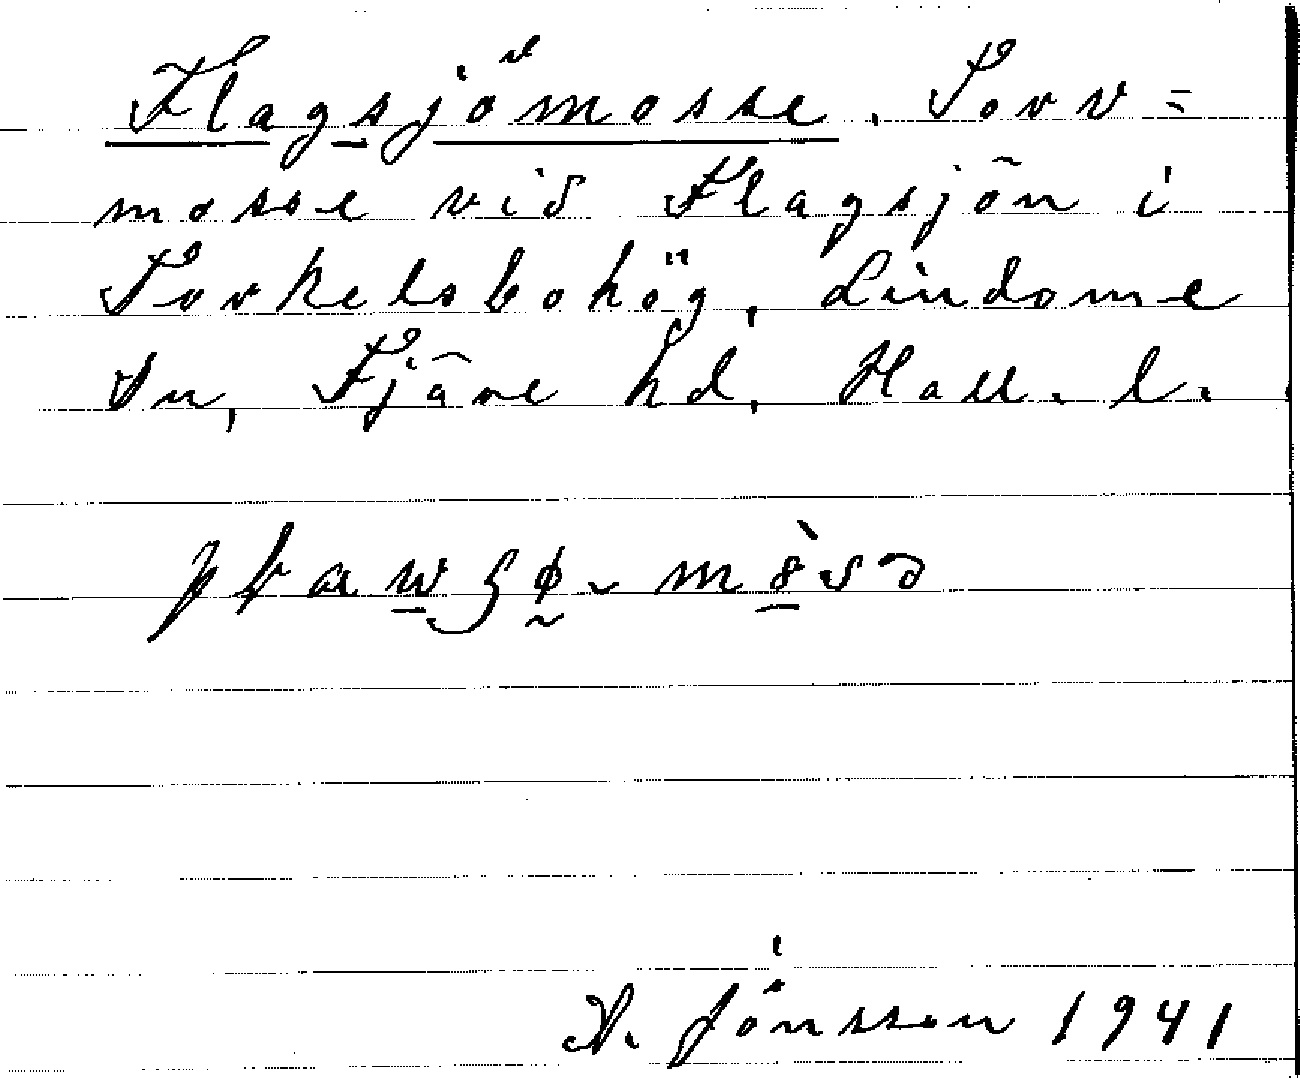 Flagsjömosse. Torv=
mosse vid Flagsjön i
Torkelsbohög, Lindome
sn, Fjäre hd, Hall. l.
A. Jönsson 1941